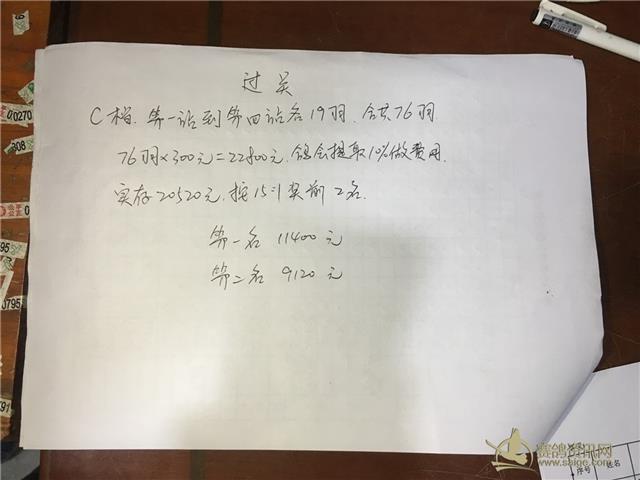 过关
C档. 第一站到第四站各19羽. 合共76羽.
76羽×300元=22800元. 鸽会提取10%做费用.
实存20520元. 按15:1奖前2名.
第一名 11400元
第二名 9120元
0270
308
0795
序号 姓名
赛鸽资讯网
www.saige.com